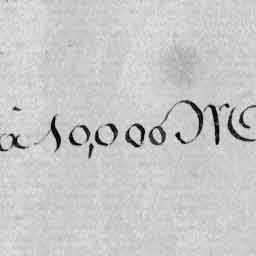 à 10,000 M